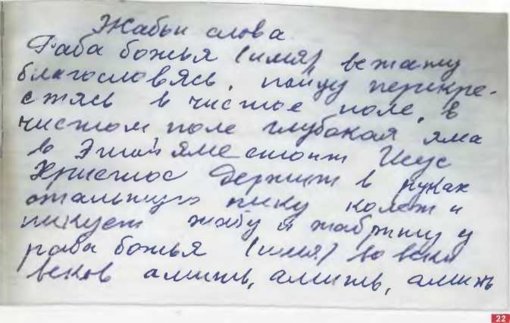 Жабьи слова
Раба божья (имя) встану
благословясь, пойду перекре-
стясь в чистое поле, в
чистом поле глубокая яма
в этой яме стоит Исус
Христос держит в руках
стальную пику колет и
пикует жабу и жабрицу у
раба божья (имя) во веки
веков аминь, аминь, аминь
22